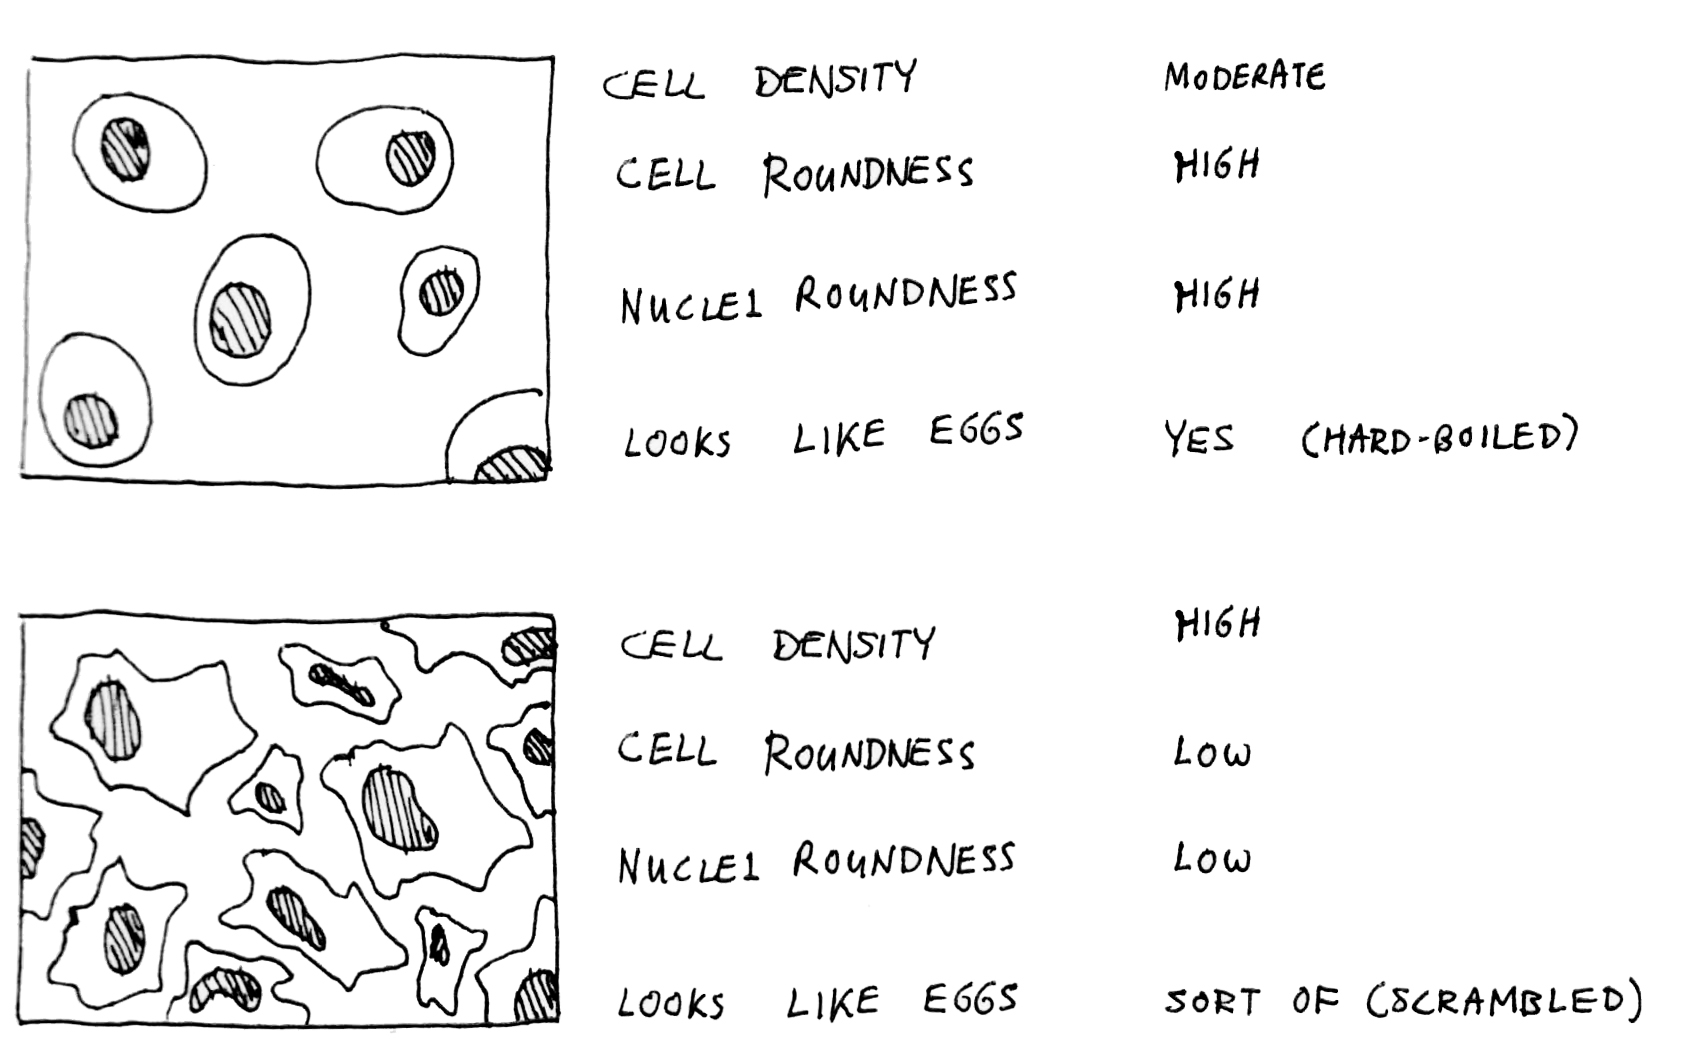 CELL DENSITY MODERATE
CELL ROUNDNESS HIGH
NUCLEI ROUNDNESS HIGH
LOOKS LIKE EGGS YES (HARD-BOILED)
CELL DENSITY HIGH
CELL ROUNDNESS LOW
NUCLEI ROUNDNESS LOW
LOOKS LIKE EGGS SORT OF (SCRAMBLED)